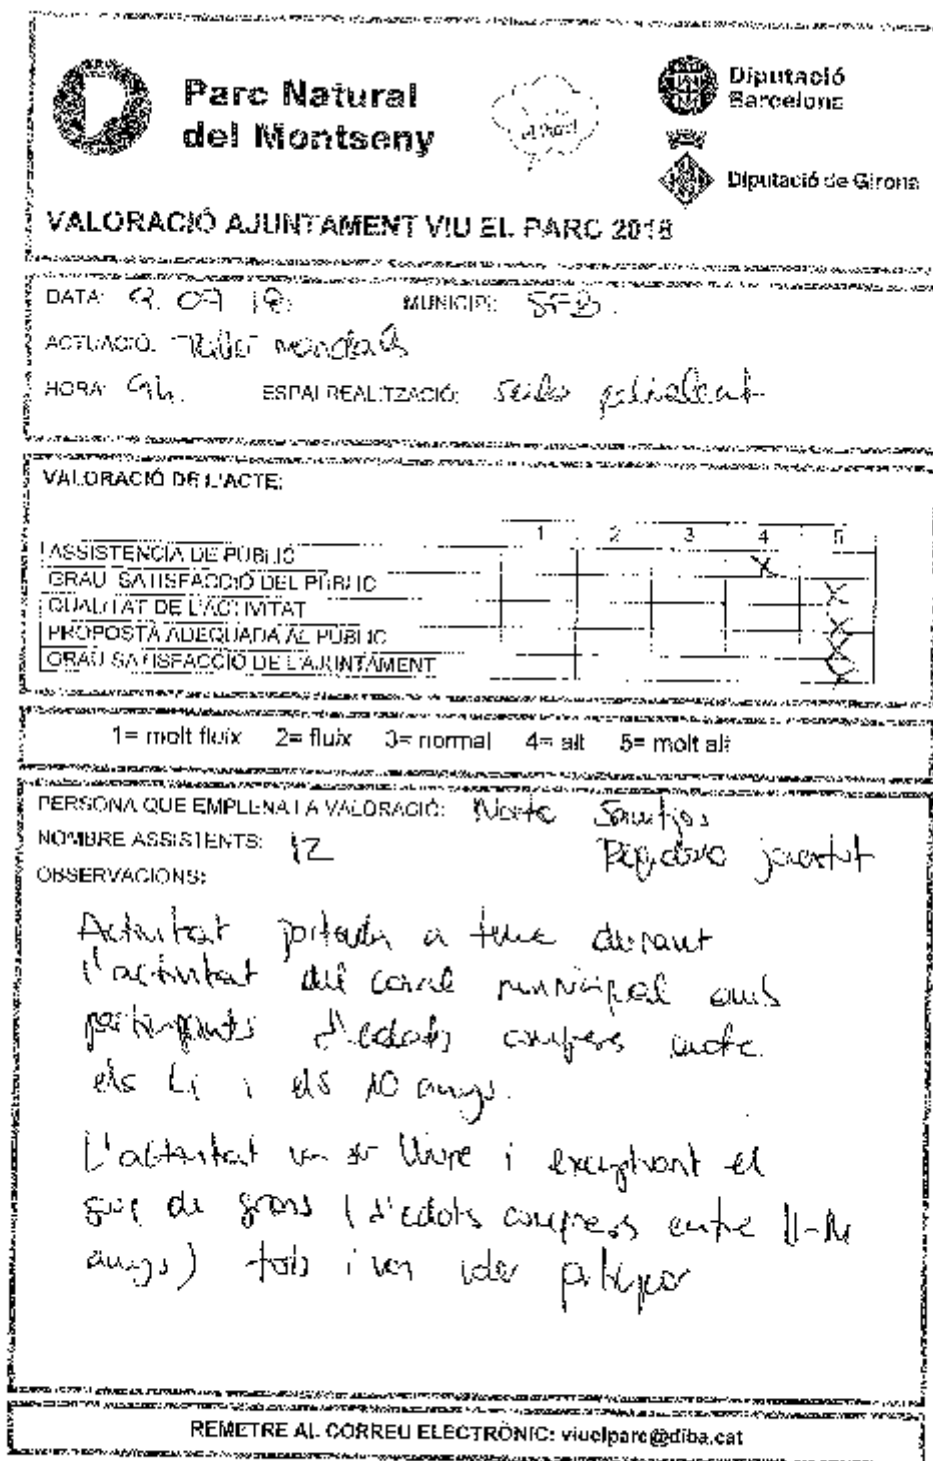 Parc Natural
del Montseny
el Parc!
Diputació
Barcelona
Diputació de Girona
VALORACIÓ AJUNTAMENT VIU EL PARC 2018
DATA: 9.07.18. MUNICIPI: SFB.
ACTUACIÓ: Taller mandales
HORA: 9h. ESPAI REALITZACIÓ: Sala polivalent
VALORACIÓ DE L'ACTE:
1 2 3 4 5
ASSISTENCIA DE PUBLIC X
GRAU SATISFACCIÓ DEL PÚBLIC X
QUALITAT DE L'ACTIVITAT X
PROPOSTA ADEQUADA AL PÚBLIC X
GRAU SATISFACCIÓ DE L'AJUNTAMENT X
1= molt fluix 2= fluix 3= normal 4= alt 5= molt alt
PERSONA QUE EMPLENA LA VALORACIÓ:
NOMBRE ASSISTENTS: 12 Regidora joventut
OBSERVACIONS:
Activitat portada a terme durant
l'activitat del casal municipal amb
participants d'edats compreses entre
els 4 i els 10 anys.
L'activitat va ser lliure i exceptuant el
grup de grans (d'edats compreses entre
anys) tots i van participar
REMETRE AL CORREU ELECTRÒNIC: viuelparc@diba.cat